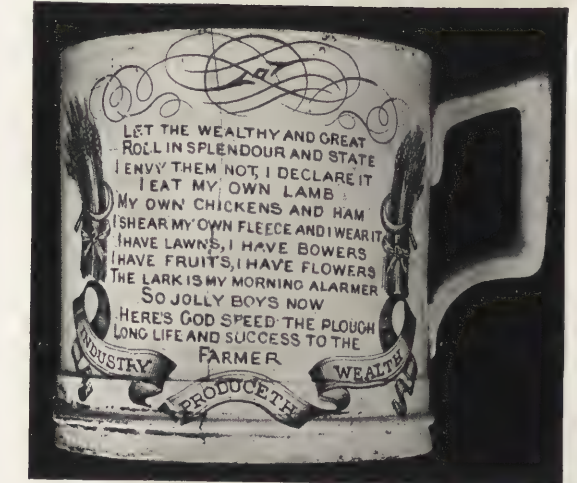 LET THE WEALTHY AND GREAT
ROLL IN SPLENDOUR AND STATE
I ENVY THEM NOT, I DECLARE IT
I EAT MY OWN LAMB
MY OWN CHICKENS AND HAM
I SHEAR MY OWN FLEECE AND I WEAR IT
I HAVE LAWNS, I HAVE BOWERS
I HAVE FRUITS, I HAVE FLOWERS
THE LARK IS MY MORNING ALARMER
SO JOLLY BOYS NOW
HERE'S GOD SPEED THE PLOUGH
LONG LIFE AND SUCCESS TO THE
FARMER
INDUSTRY
PRODUCETH
WEALTH